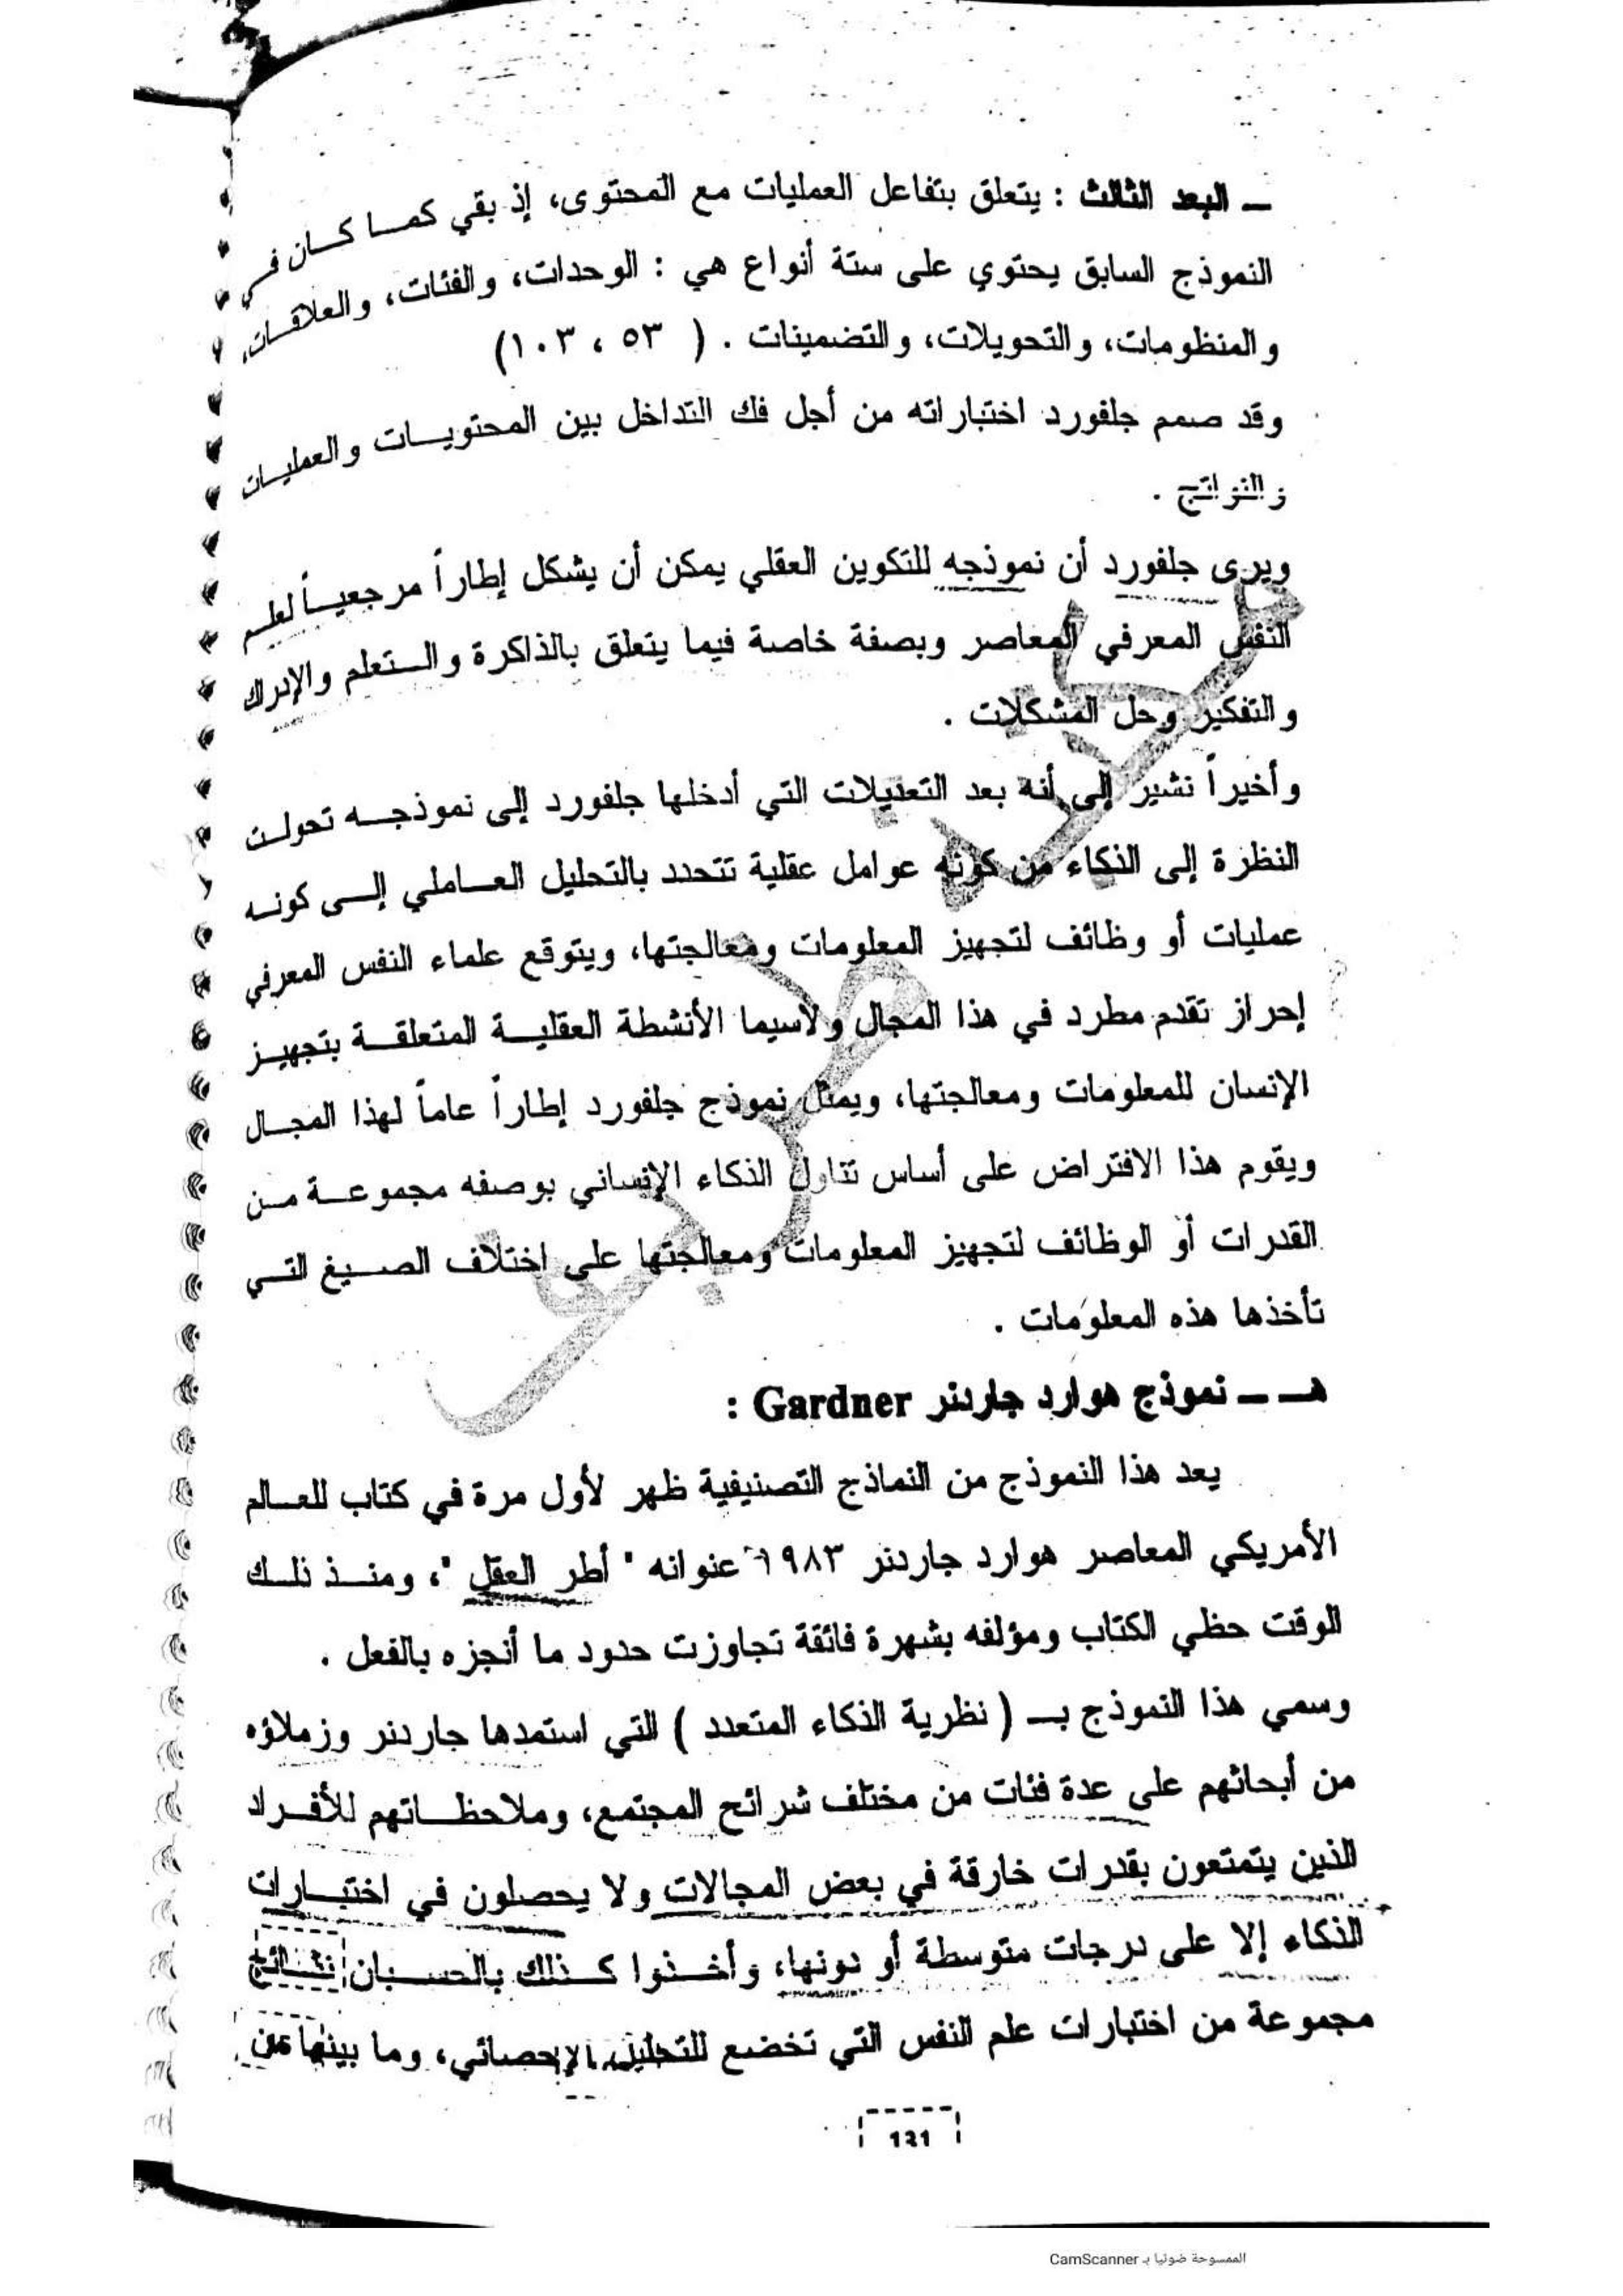 ــ البعد الثالث : يتعلق بتفاعل العمليات مع المحتوى، إذ بقي كمـا كـان فـي
النموذج السابق يحتوي على ستة أنواع هي : الوحدات، والفئات، والعلاقـات،
والمنظومات، والتحويلات، والتضمينات . ( ٥٣ ، ١٠٣)
وقد صمم جلفورد اختباراته من أجل فك التداخل بين المحتويـات والعمليـات
والنواتج .
ويرى جلفورد أن نموذجه للتكوين العقلي يمكن أن يشكل إطاراً مرجعيـاً لعلـم
النفس المعرفي المعاصر وبصفة خاصة فيما يتعلق بالذاكرة والـتعلم والإدراك
والتفكير وحل المشكلات .
وأخيراً نشير إلى أنه بعد التعديلات التي أدخلها جلفورد إلى نموذجـه تحولـت
النظرة إلى الذكاء من كونه عوامل عقلية تتحدد بالتحليل العـاملي إلـى كونـه
عمليات أو وظائف لتجهيز المعلومات ومعالجتها، ويتوقع علماء النفس المعرفي
إحراز تقدم مطرد في هذا المجال ولاسيما الأنشطة العقليـة المتعلقـة بتجهيـز
الإنسان للمعلومات ومعالجتها، ويمثل نموذج جلفورد إطاراً عاماً لهذا المجـال
ويقوم هذا الافتراض على أساس تناول الذكاء الإنساني بوصفه مجموعـة مـن
القدرات أو الوظائف لتجهيز المعلومات ومعالجتها على اختلاف الصـيغ التـي
تأخذها هذه المعلومات .
هـ ــ نموذج هوارد جاردنر Gardner :
يعد هذا النموذج من النماذج التصنيفية ظهر لأول مرة في كتاب للعـالم
الأمريكي المعاصر هوارد جاردنر ١٩٨٣ عنوانه " أطر العقل "، ومنـذ ذلـك
الوقت حظي الكتاب ومؤلفه بشهرة فائقة تجاوزت حدود ما أنجزه بالفعل .
وسمي هذا النموذج بـ ( نظرية الذكاء المتعدد ) التي استمدها جاردنر وزملاؤه
من أبحاثهم على عدة فئات من مختلف شرائح المجتمع، وملاحظـاتهم للأفـراد
الذين يتمتعون بقدرات خارقة في بعض المجالات ولا يحصلون في اختبـارات
الذكاء إلا على درجات متوسطة أو دونها، وأخـذوا كـذلك بالحسـبان نتـائج
مجموعة من اختبارات علم النفس التي تخضع للتحليل الإحصائي، وما بينها من
121
الممسوحة ضوئيا بـ CamScanner